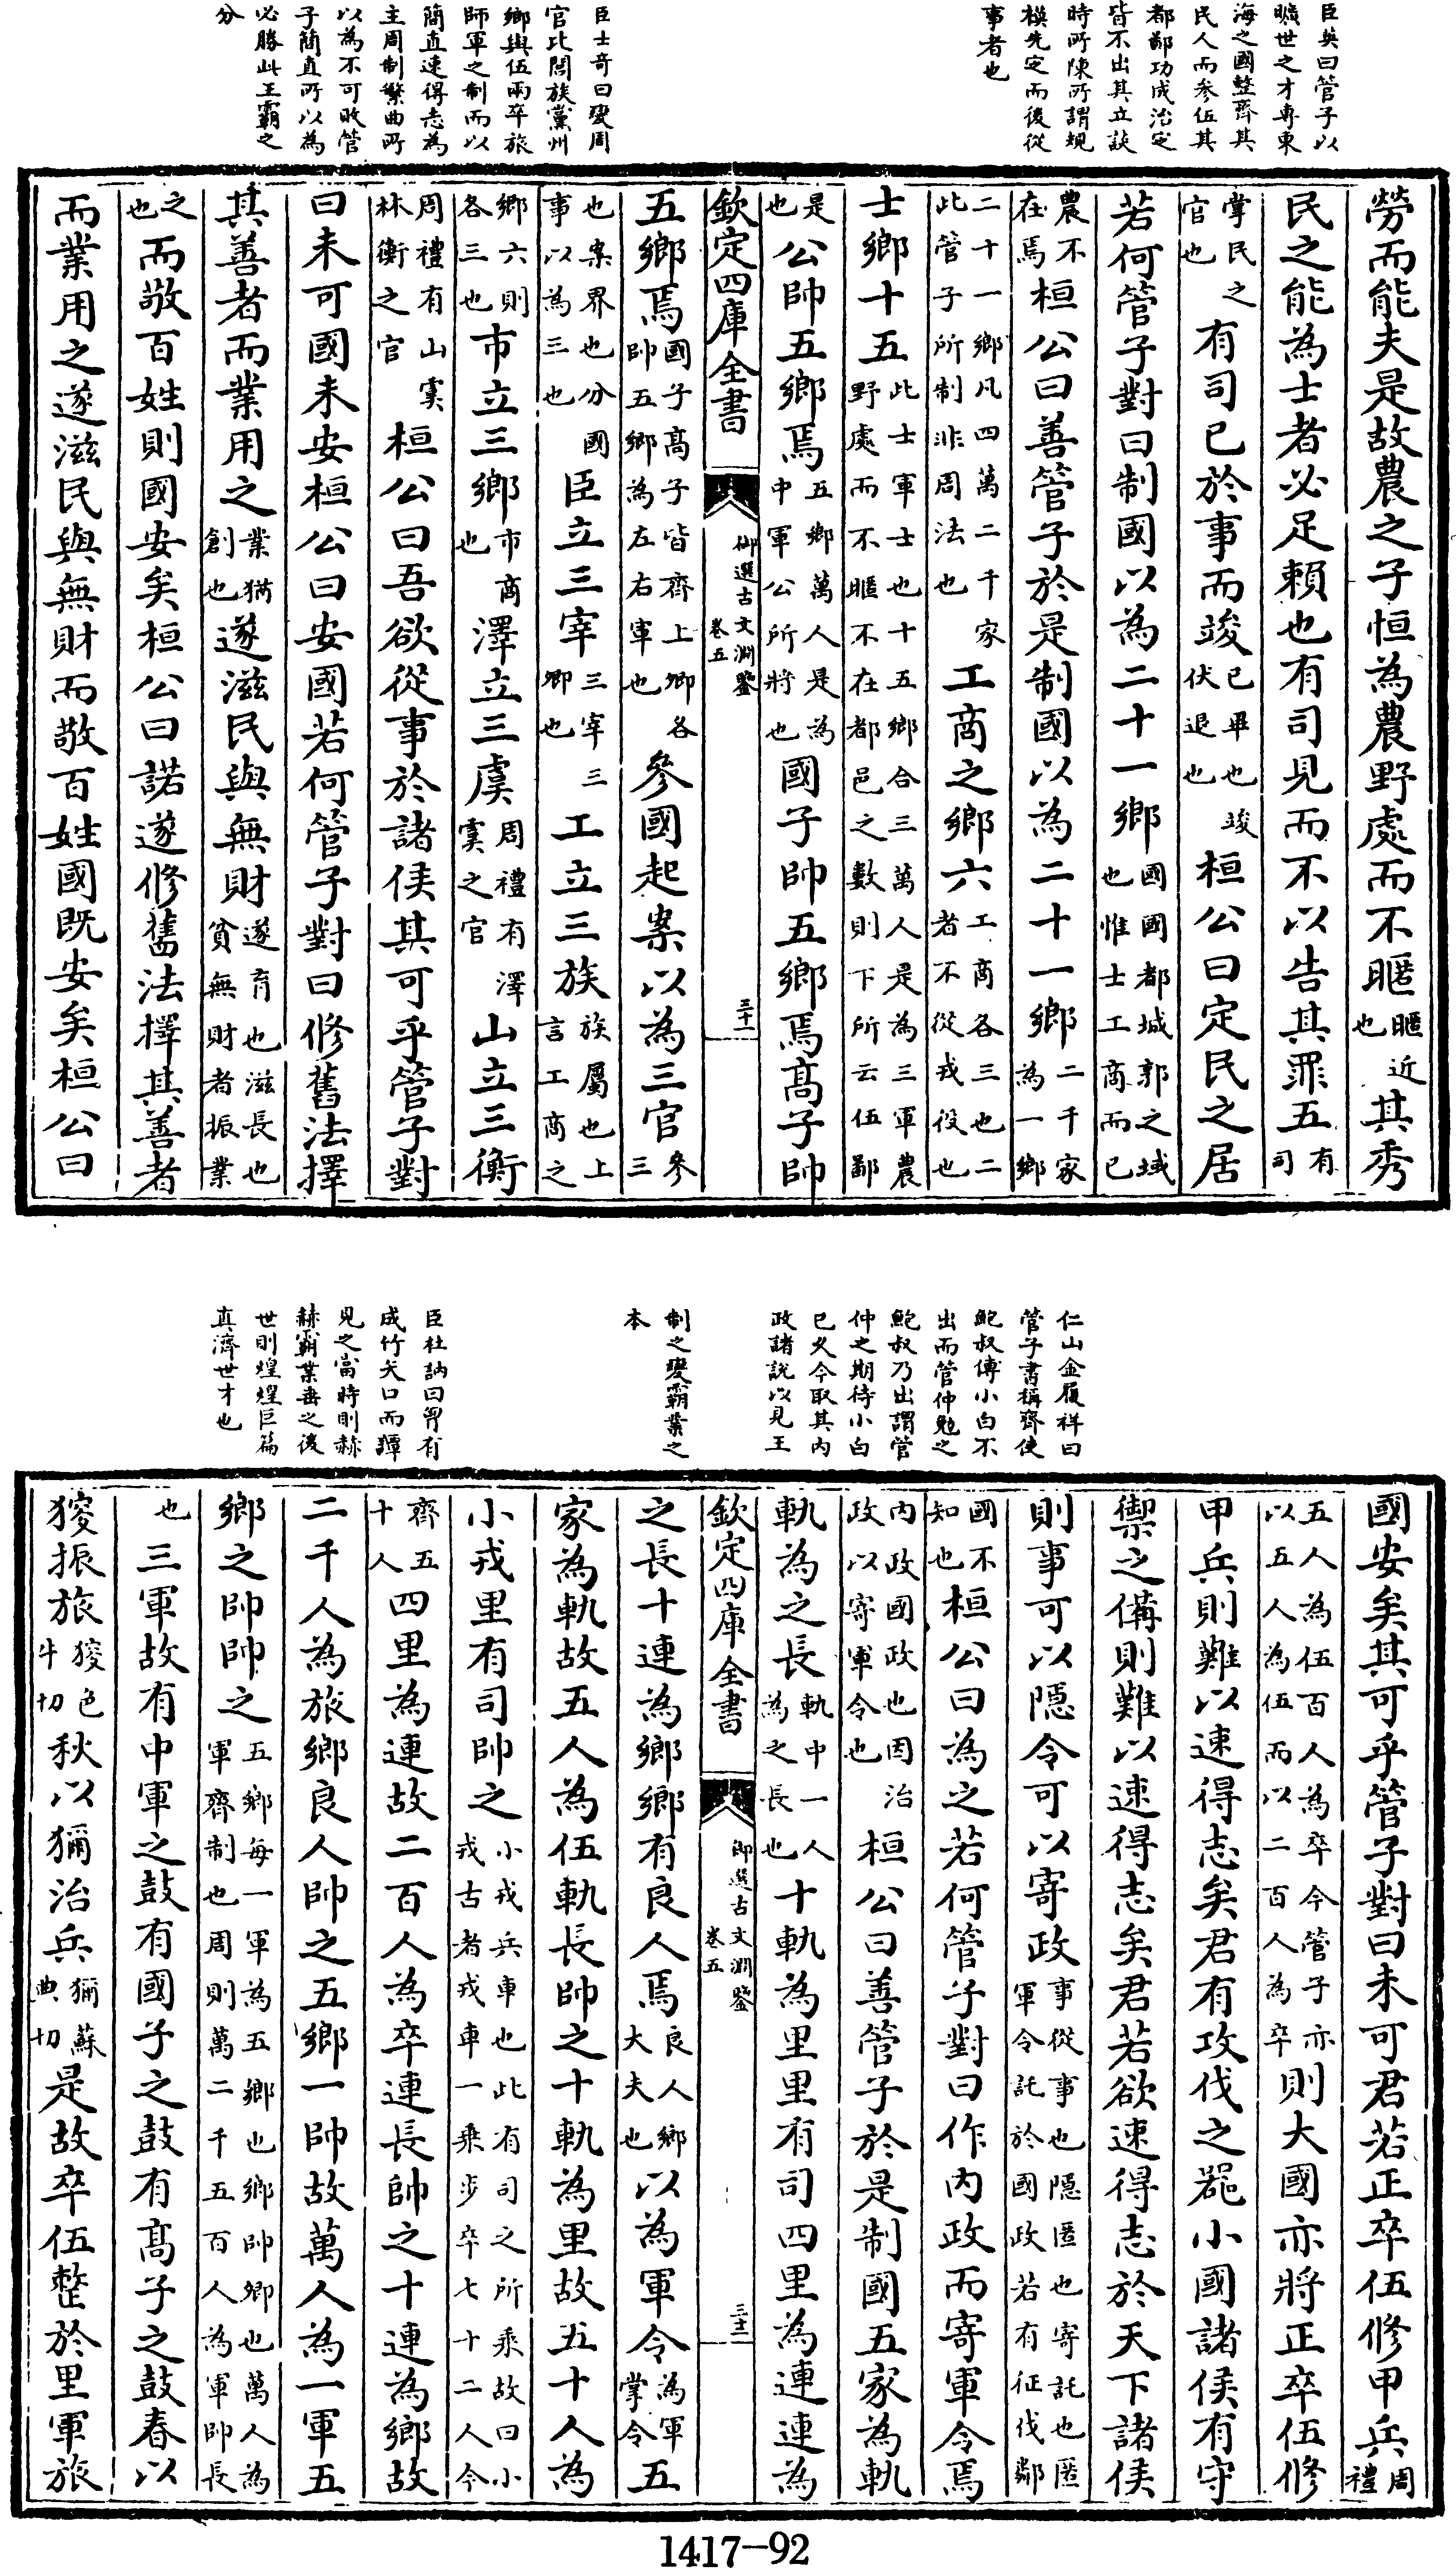 臣英曰管子以
曠世之才專東
海之國整齊其
民人而參伍其
都鄙功成治定
皆不出其立談
時所陳所謂規
模先定而後從
事者也
臣士奇曰變周
官比閭族黨州
鄉與伍兩卒旅
師軍之制而以
簡直速得志為
主周制繁曲所
以為不可敗管
子簡直所以為
必勝此王霸之
分
勞而能夫是故農之子恒為農野處而不暱暱近也其秀
民之能為士者必足賴也有司見而不以告其罪五有司
掌民之官也有司已於事而竣已畢也竣伏退也桓公曰定民之居
若何管子對曰制國以為二十一鄉國國都城郭之域也惟士工商而已
農不在焉桓公曰善管子於是制國以為二十一鄉二千家為一鄉
二十一鄉凡四萬二千家此管子所制非周法也工商之鄉六工商各三也二者不從戎役也
士鄉十五此士軍士也十五鄉合三萬人是為三軍農野處而不暱不在都邑之數則下所云伍鄙
是也公帥五鄉焉五鄉萬人是為中軍公所將也國子帥五鄉焉高子帥
欽定四庫全書 御選古文淵鑒 卷五 三十一
五鄉焉國子高子皆齊上卿各帥五鄉為左右軍也參國起案以為三官參三
也案界也分國事以為三也臣立三宰三宰三卿也工立三族族屬也上言工商之
鄉六則各三也市立三鄉市商也澤立三虞周禮有澤虞之官山立三衡
周禮有山虞林衡之官桓公曰吾欲從事於諸侯其可乎管子對
曰未可國未安桓公曰安國若何管子對曰修舊法擇
其善者而業用之業猶創也遂滋民與無財遂育也滋長也貧無財者振業
之也而敬百姓則國安矣桓公曰諾遂修舊法擇其善者
而業用之遂滋民與無財而敬百姓國既安矣桓公曰
仁山金履祥曰
管子書稱齊使
鮑叔傅小白不
出而管仲勉之
鮑叔乃出謂管
仲之期待小白
已久今取其內
政諸說以見王
制之變霸業之
本
臣杜訥曰胷有
成竹矢口而譚
見之當時則赫
赫霸業垂之後
世則煌煌巨篇
真濟世才也
國安矣其可乎管子對曰未可君若正卒伍修甲兵周禮
五人為伍百人為卒今管子亦以五人為伍而以二百人為卒則大國亦將正卒伍修
甲兵則難以速得志矣君有攻伐之器小國諸侯有守
禦之備則難以速得志矣君若欲速得志於天下諸侯
則事可以隱令可以寄政事從事也隱匿也寄託也匿軍令託於國政若有征伐鄰
國不知也桓公曰為之若何管子對曰作內政而寄軍令焉
內政國政也因治政以寄軍令也桓公曰善管子於是制國五家為軌
軌為之長軌中一人為之長也十軌為里里有司四里為連連為
欽定四庫全書 御選古文淵鑒 卷五 三十二
之長十連為鄉鄉有良人焉良人鄉大夫也以為軍令為軍掌令五
家為軌故五人為伍軌長帥之十軌為里故五十人為
小戎里有司帥之小戎兵車也此有司之所乘故曰小戎古者戎車一乘步卒七十二人今
齊五十人四里為連故二百人為卒連長帥之十連為鄉故
二千人為旅鄉良人帥之五鄉一帥故萬人為一軍五
鄉之帥帥之五鄉每一軍為五鄉也鄉帥卿也萬人為軍齊制也周則萬二千五百人為軍帥長
也三軍故有中軍之鼓有國子之鼓有高子之鼓春以
獀振旅獀色牛切秋以獮治兵獮蘇典切是故卒伍整於里軍旅
1417-92